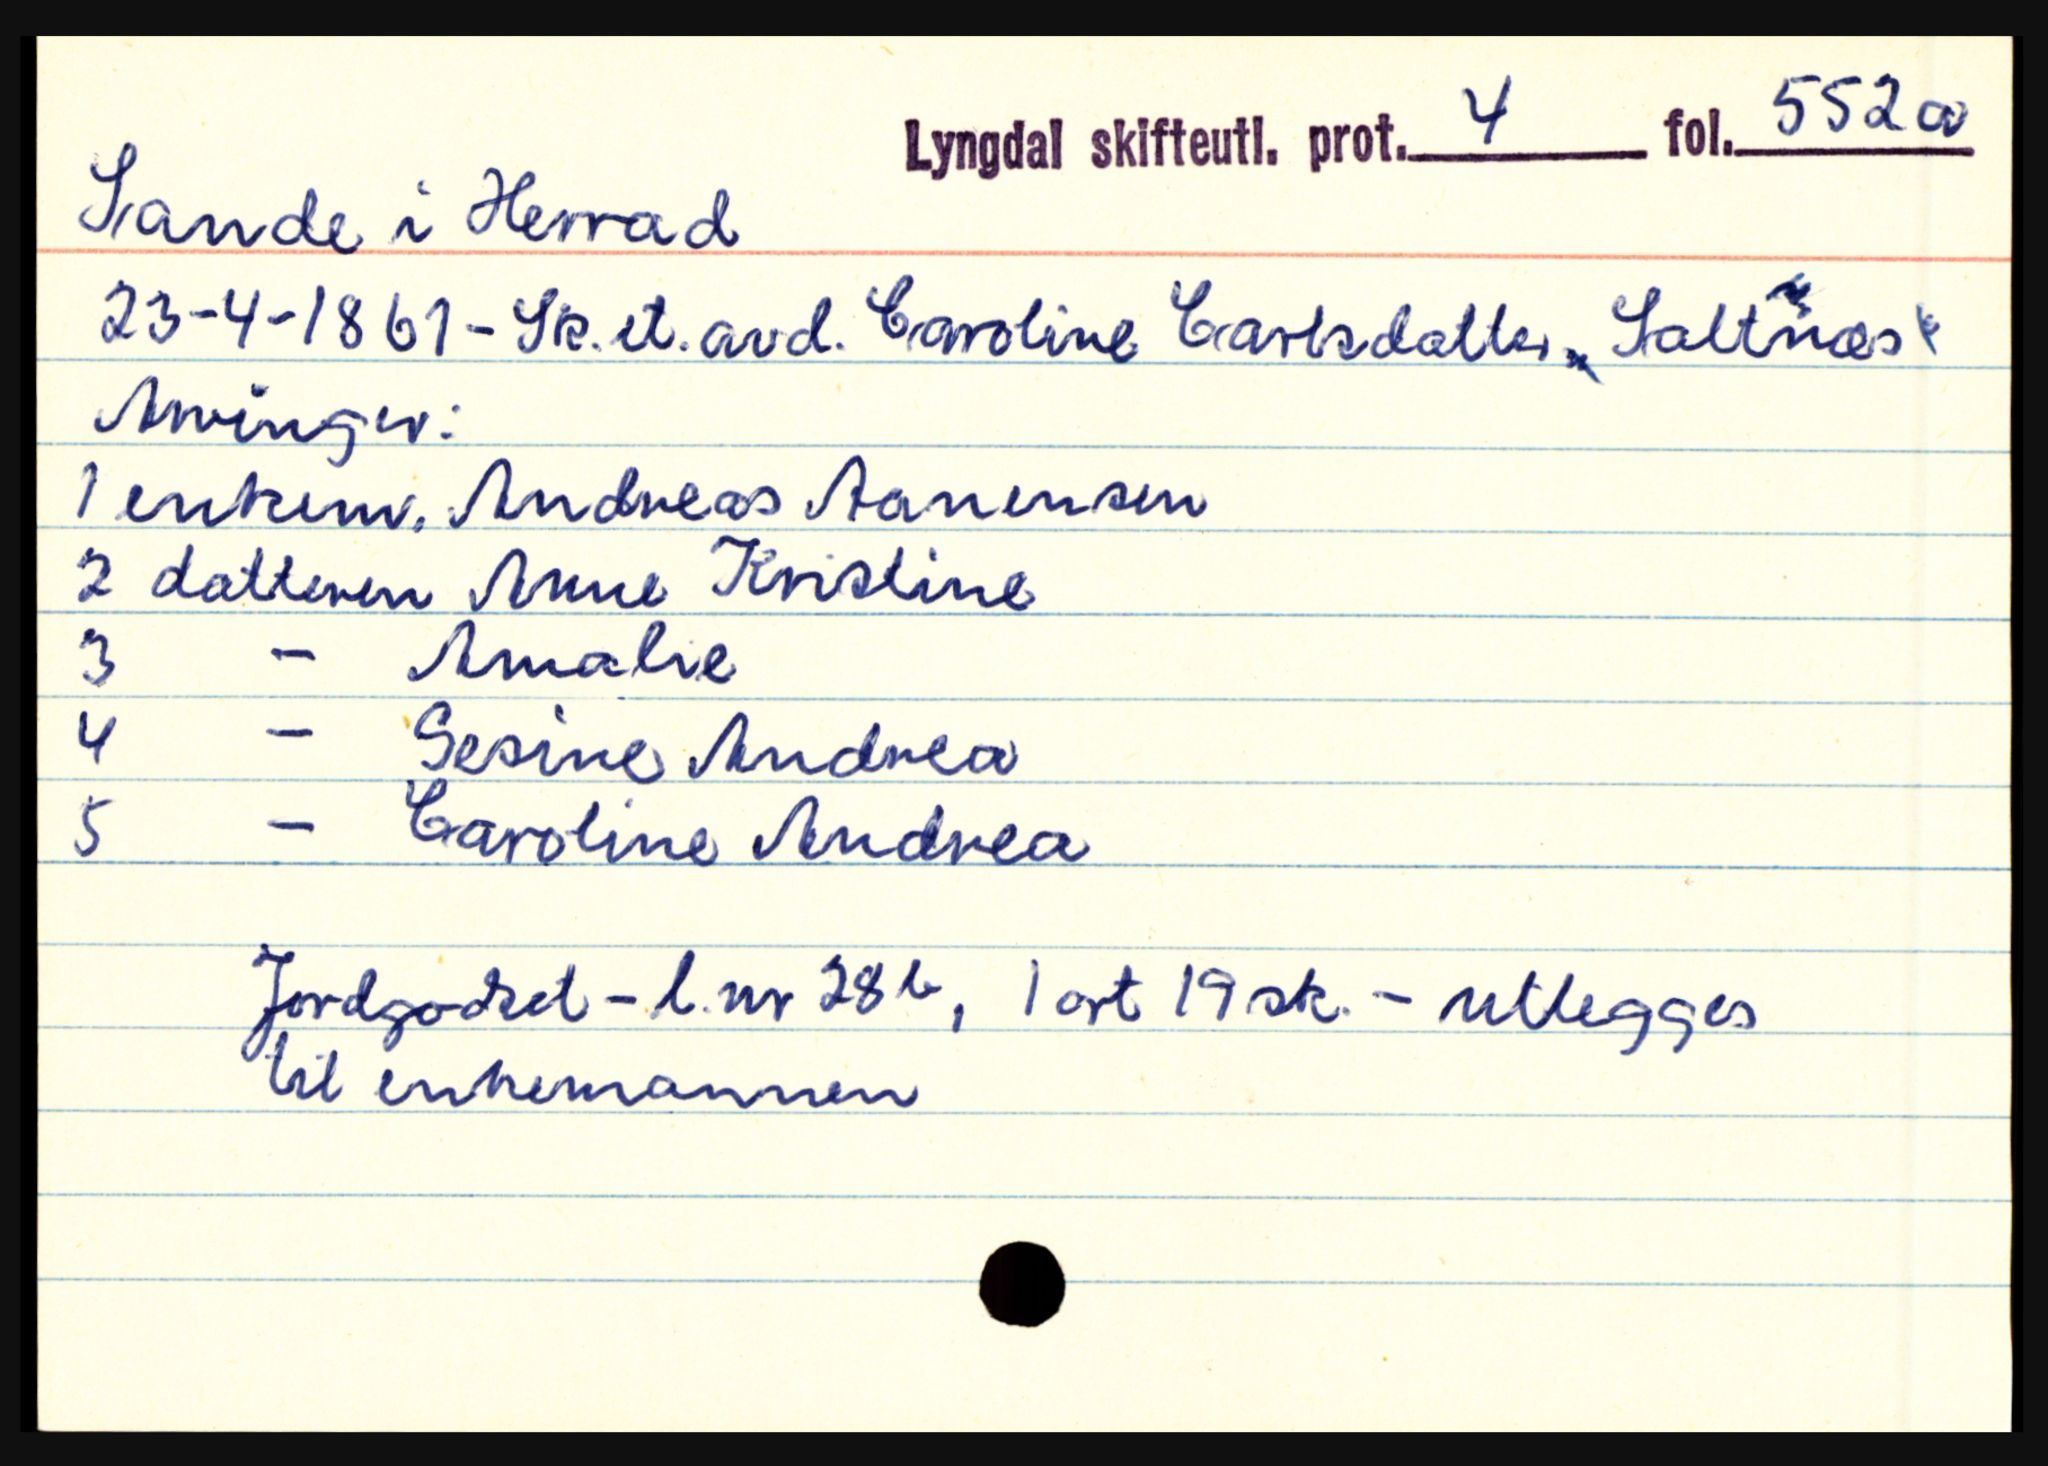 Lyngdal skifteutl. prot. 4 fol. 552a
Sande i Herrad
23-4-1861 - Sk. et. avd. Caroline Carlsdatter, Saltnæs
Arvinger:
1 enkem. Andreas Aanensen
2 datteren Anne Kristine
3 - Amalie
4 - Gesine Andrea
5 - Caroline Andrea
Jordgodset - l. nr 28b, 1 ort 19 sk. - utlegges
til enkemannen